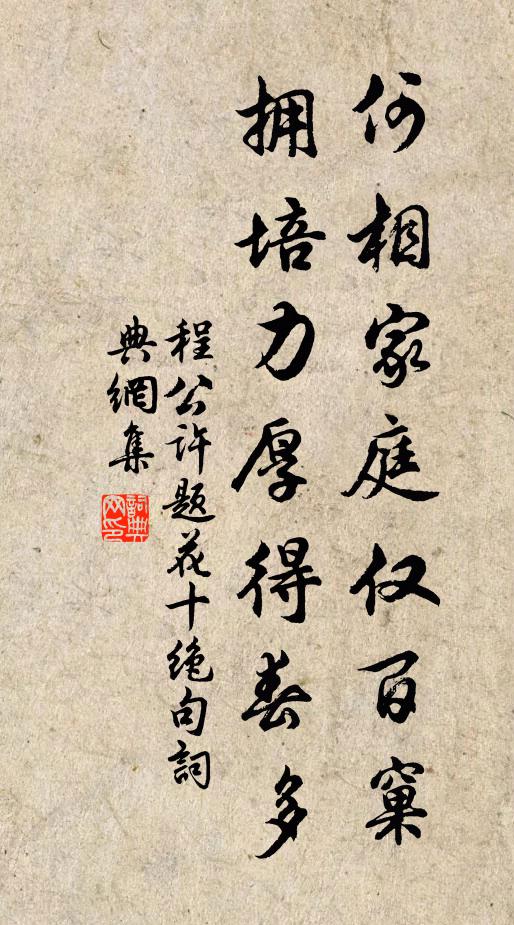 何相家庭仅百窠
拥培力厚得春多
程公许题花十绝句詞
典網集
詞典网印